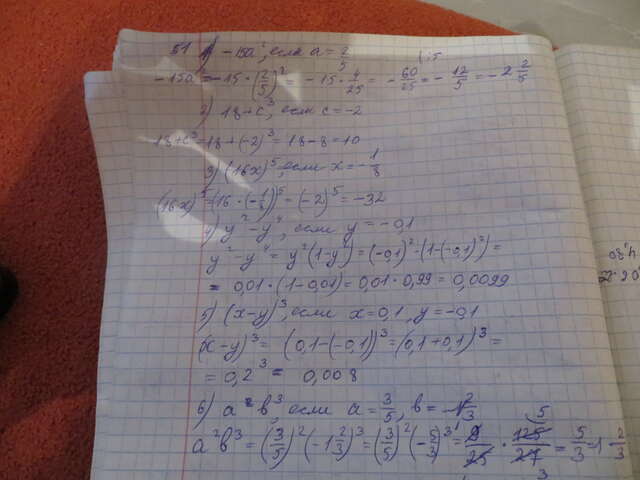 51 1) -15a², если a = 2/5
-15a² = -15 · (2/5)² = -15 · 4/25 = -60/25 = -12/5 = -2 2/5
(:5
2) 18+c³, если c = -2
18+c³ = 18+(-2)³ = 18-8 = 10
3) (16x)⁵, если x = -1/8
(16x)⁵ = (16 · (-1/8))⁵ = (-2)⁵ = -32
4) y² - y⁴, если y = -0,1
y² - y⁴ = y²(1-y²) = (-0,1)² · (1-(-0,1)²) =
= 0,01 · (1-0,01) = 0,01 · 0,99 = 0,0099
5) (x-y)³, если x = 0,1, y = -0,1
(x-y)³ = (0,1-(-0,1))³ = (0,1+0,1)³ =
= 0,2³ = 0,008
6) a²b³, если a = 3/5, b = -1 2/3
a²b³ = (3/5)² (-1 2/3)³ = (3/5)² (-5/3)³ = 9/25 · 125/27 = 5/3 = 1 2/3